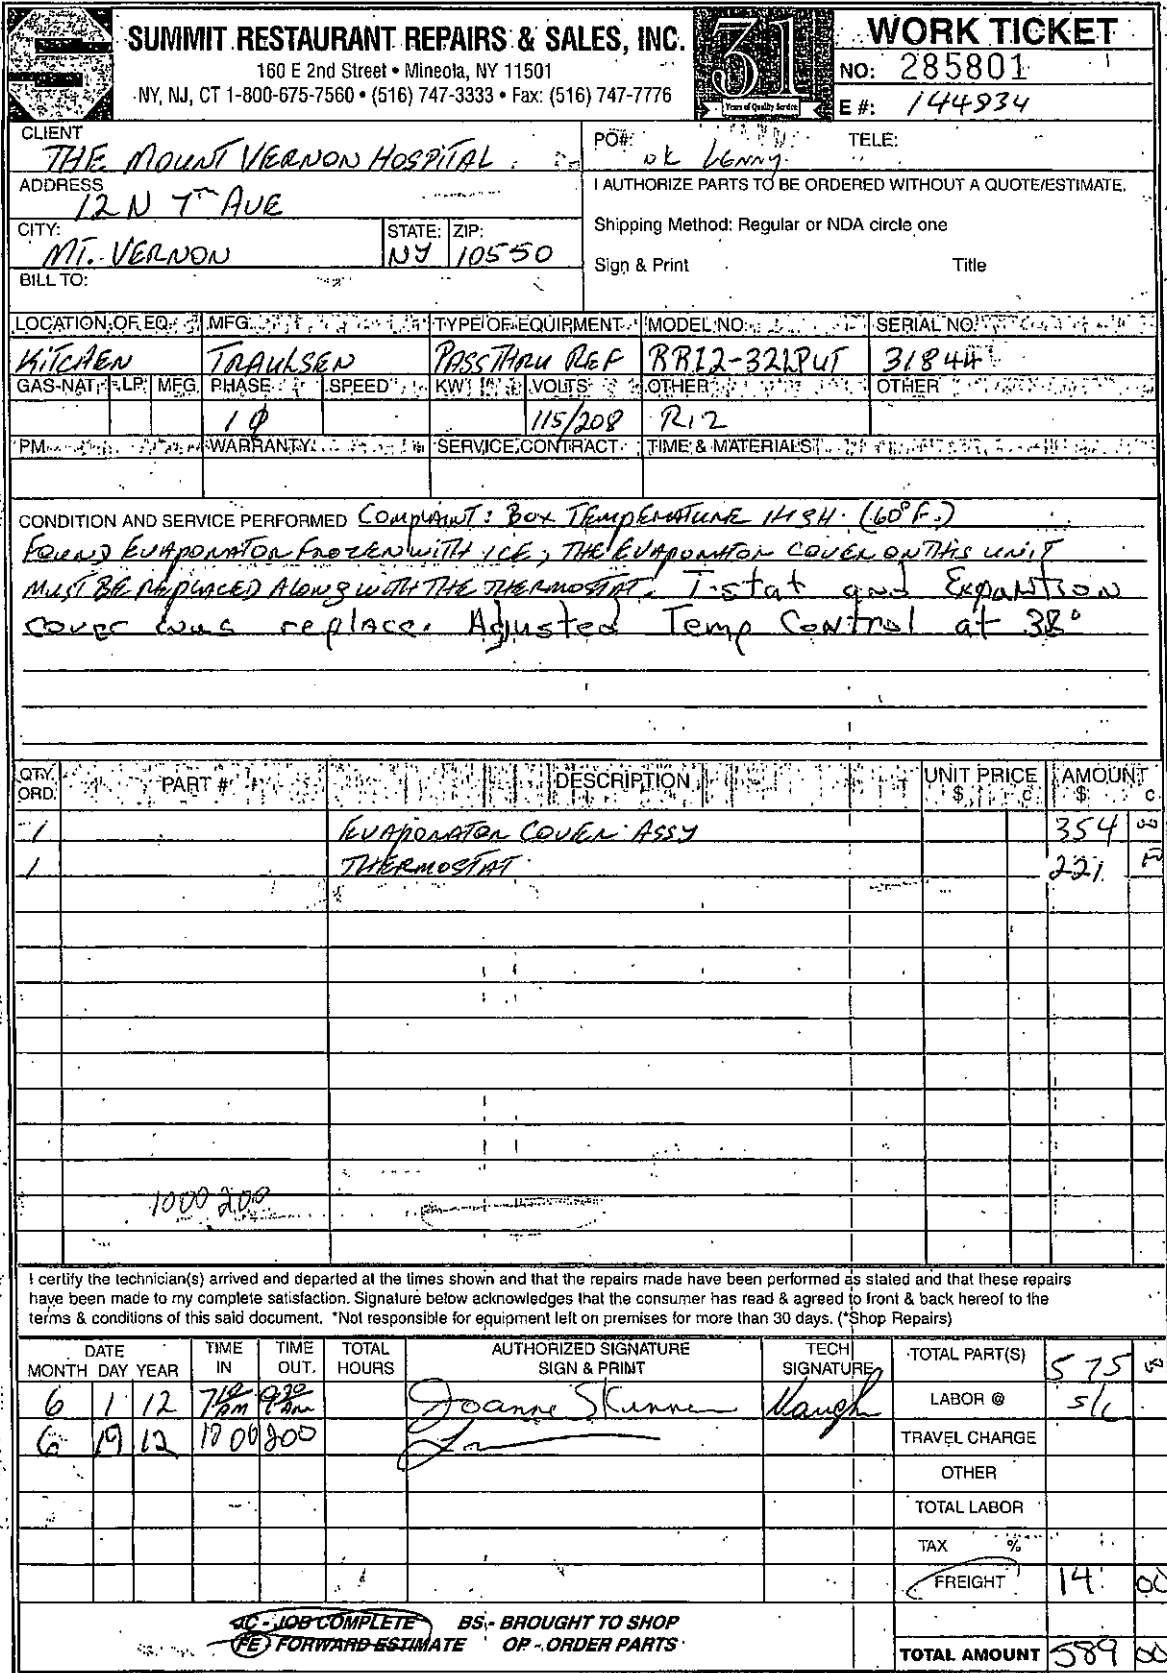 SUMMIT RESTAURANT REPAIRS & SALES, INC.
160 E 2nd Street • Mineola, NY 11501
NY, NJ, CT 1-800-675-7560 • (516) 747-3333 • Fax: (516) 747-7776
31
Years of Quality Service
WORK TICKET
NO: 285801
E #: 144934
CLIENT
THE MOUNT VERNON HOSPITAL
PO#: OK LENNY
TELE:
ADDRESS
12 N 7TH AVE
I AUTHORIZE PARTS TO BE ORDERED WITHOUT A QUOTE/ESTIMATE.
CITY: MT. VERNON
STATE: NY
ZIP: 10550
Shipping Method: Regular or NDA circle one
Sign & Print Title
BILL TO:
LOCATION OF EQ. MFG. TYPE OF EQUIPMENT MODEL NO. SERIAL NO.
KITCHEN TRAULSEN PASS THRU REF RRI2-32LPUT 31844
GAS-NAT LP MFG. PHASE SPEED KW VOLTS OTHER OTHER
1Φ 115/208 R12
PM WARRANTY SERVICE CONTRACT TIME & MATERIALS
CONDITION AND SERVICE PERFORMED COMPLAINT: BOX TEMPERATURE HIGH. (60°F.)
FOUND EVAPORATOR FROZEN WITH ICE, THE EVAPORATOR COVER ON THIS UNIT
MUST BE REPLACED ALONG WITH THE THERMOSTAT. T-stat and Expantion
cover was replace. Adjusted Temp Control at 38°
QTY. ORD. PART # DESCRIPTION UNIT PRICE $ c AMOUNT $ c
1 EVAPORATOR COVER ASSY 354 00
1 THERMOSTAT 221
1000 200
I certify the technician(s) arrived and departed at the times shown and that the repairs made have been performed as stated and that these repairs
have been made to my complete satisfaction. Signature below acknowledges that the consumer has read & agreed to front & back hereof to the
terms & conditions of this said document. *Not responsible for equipment left on premises for more than 30 days. (*Shop Repairs)
DATE MONTH DAY YEAR TIME IN TIME OUT. TOTAL HOURS AUTHORIZED SIGNATURE SIGN & PRINT TECH SIGNATURE
6 1 12 AM AM Joanne Skinner
6 19 12 10 00 200
TOTAL PART(S) 575 00
LABOR @ s/c
TRAVEL CHARGE
OTHER
TOTAL LABOR
TAX %
FREIGHT 14 00
JC - JOB COMPLETE BS - BROUGHT TO SHOP
FE FORWARD ESTIMATE OP - ORDER PARTS
TOTAL AMOUNT 589 00